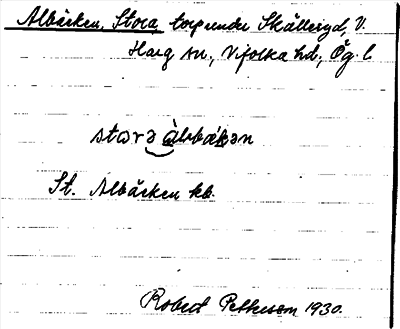 Albäcken, Stora, torp under Skälleryd, V.
Harg sn, Vifolka hd, Ög. l.
storə àlbbäkən
St. Albäcken kb.
Robert Pettersson 1930.